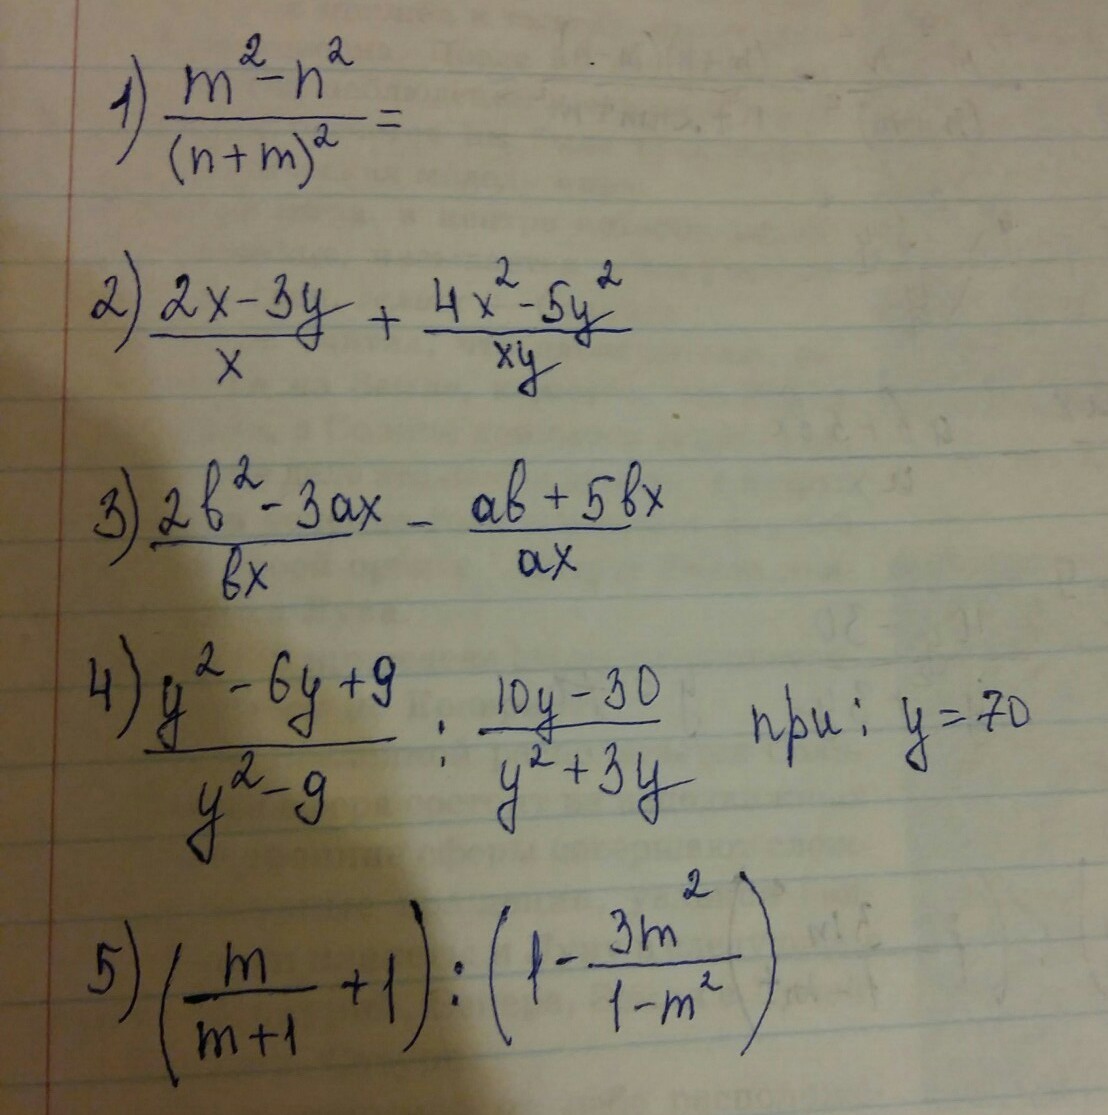 1) (m² - n²)/(n + m)² =
2) (2x - 3y)/x + (4x² - 5y²)/(xy)
3) (2в² - 3ax)/(вx) - (aв + 5вx)/(ax)
4) (y² - 6y + 9)/(y² - 9) : (10y - 30)/(y² + 3y) при: y = 70
5) (m/(m+1) + 1) : (1 - 3m²/(1 - m²))